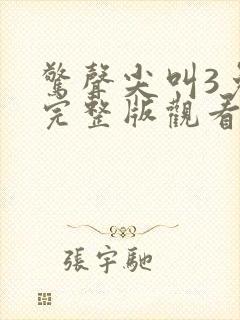 驚聲尖叫3
完整版觀看
張宇馳